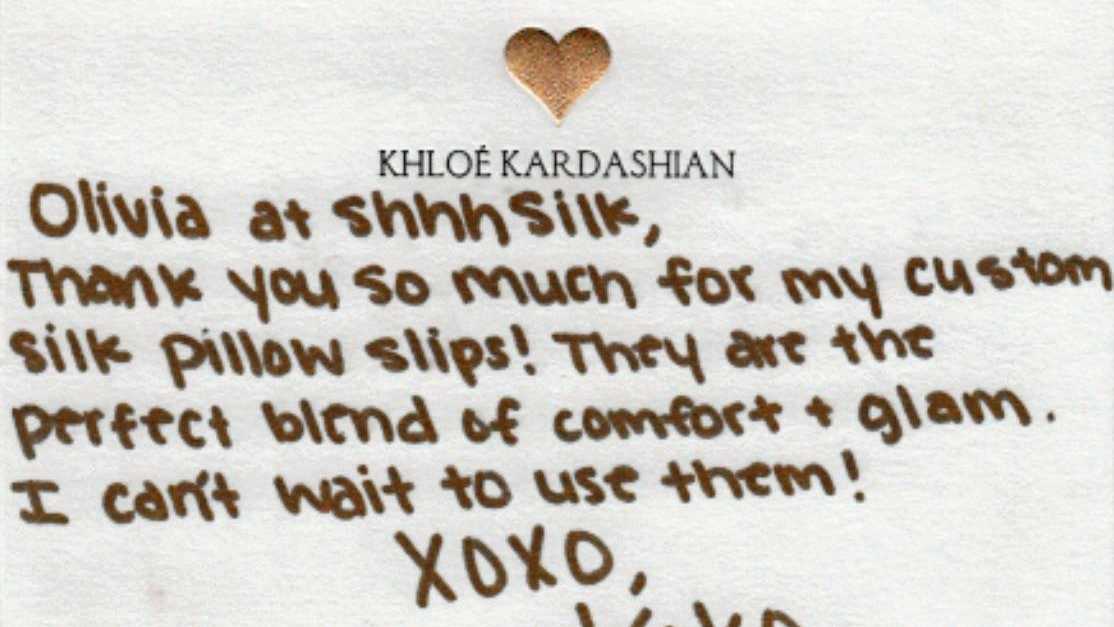 KHLOÉ KARDASHIAN
Olivia at shhh Silk,
Thank you so much for my custom
silk pillow slips! They are the
perfect blend of comfort + glam.
I can't wait to use them!
XOXO,